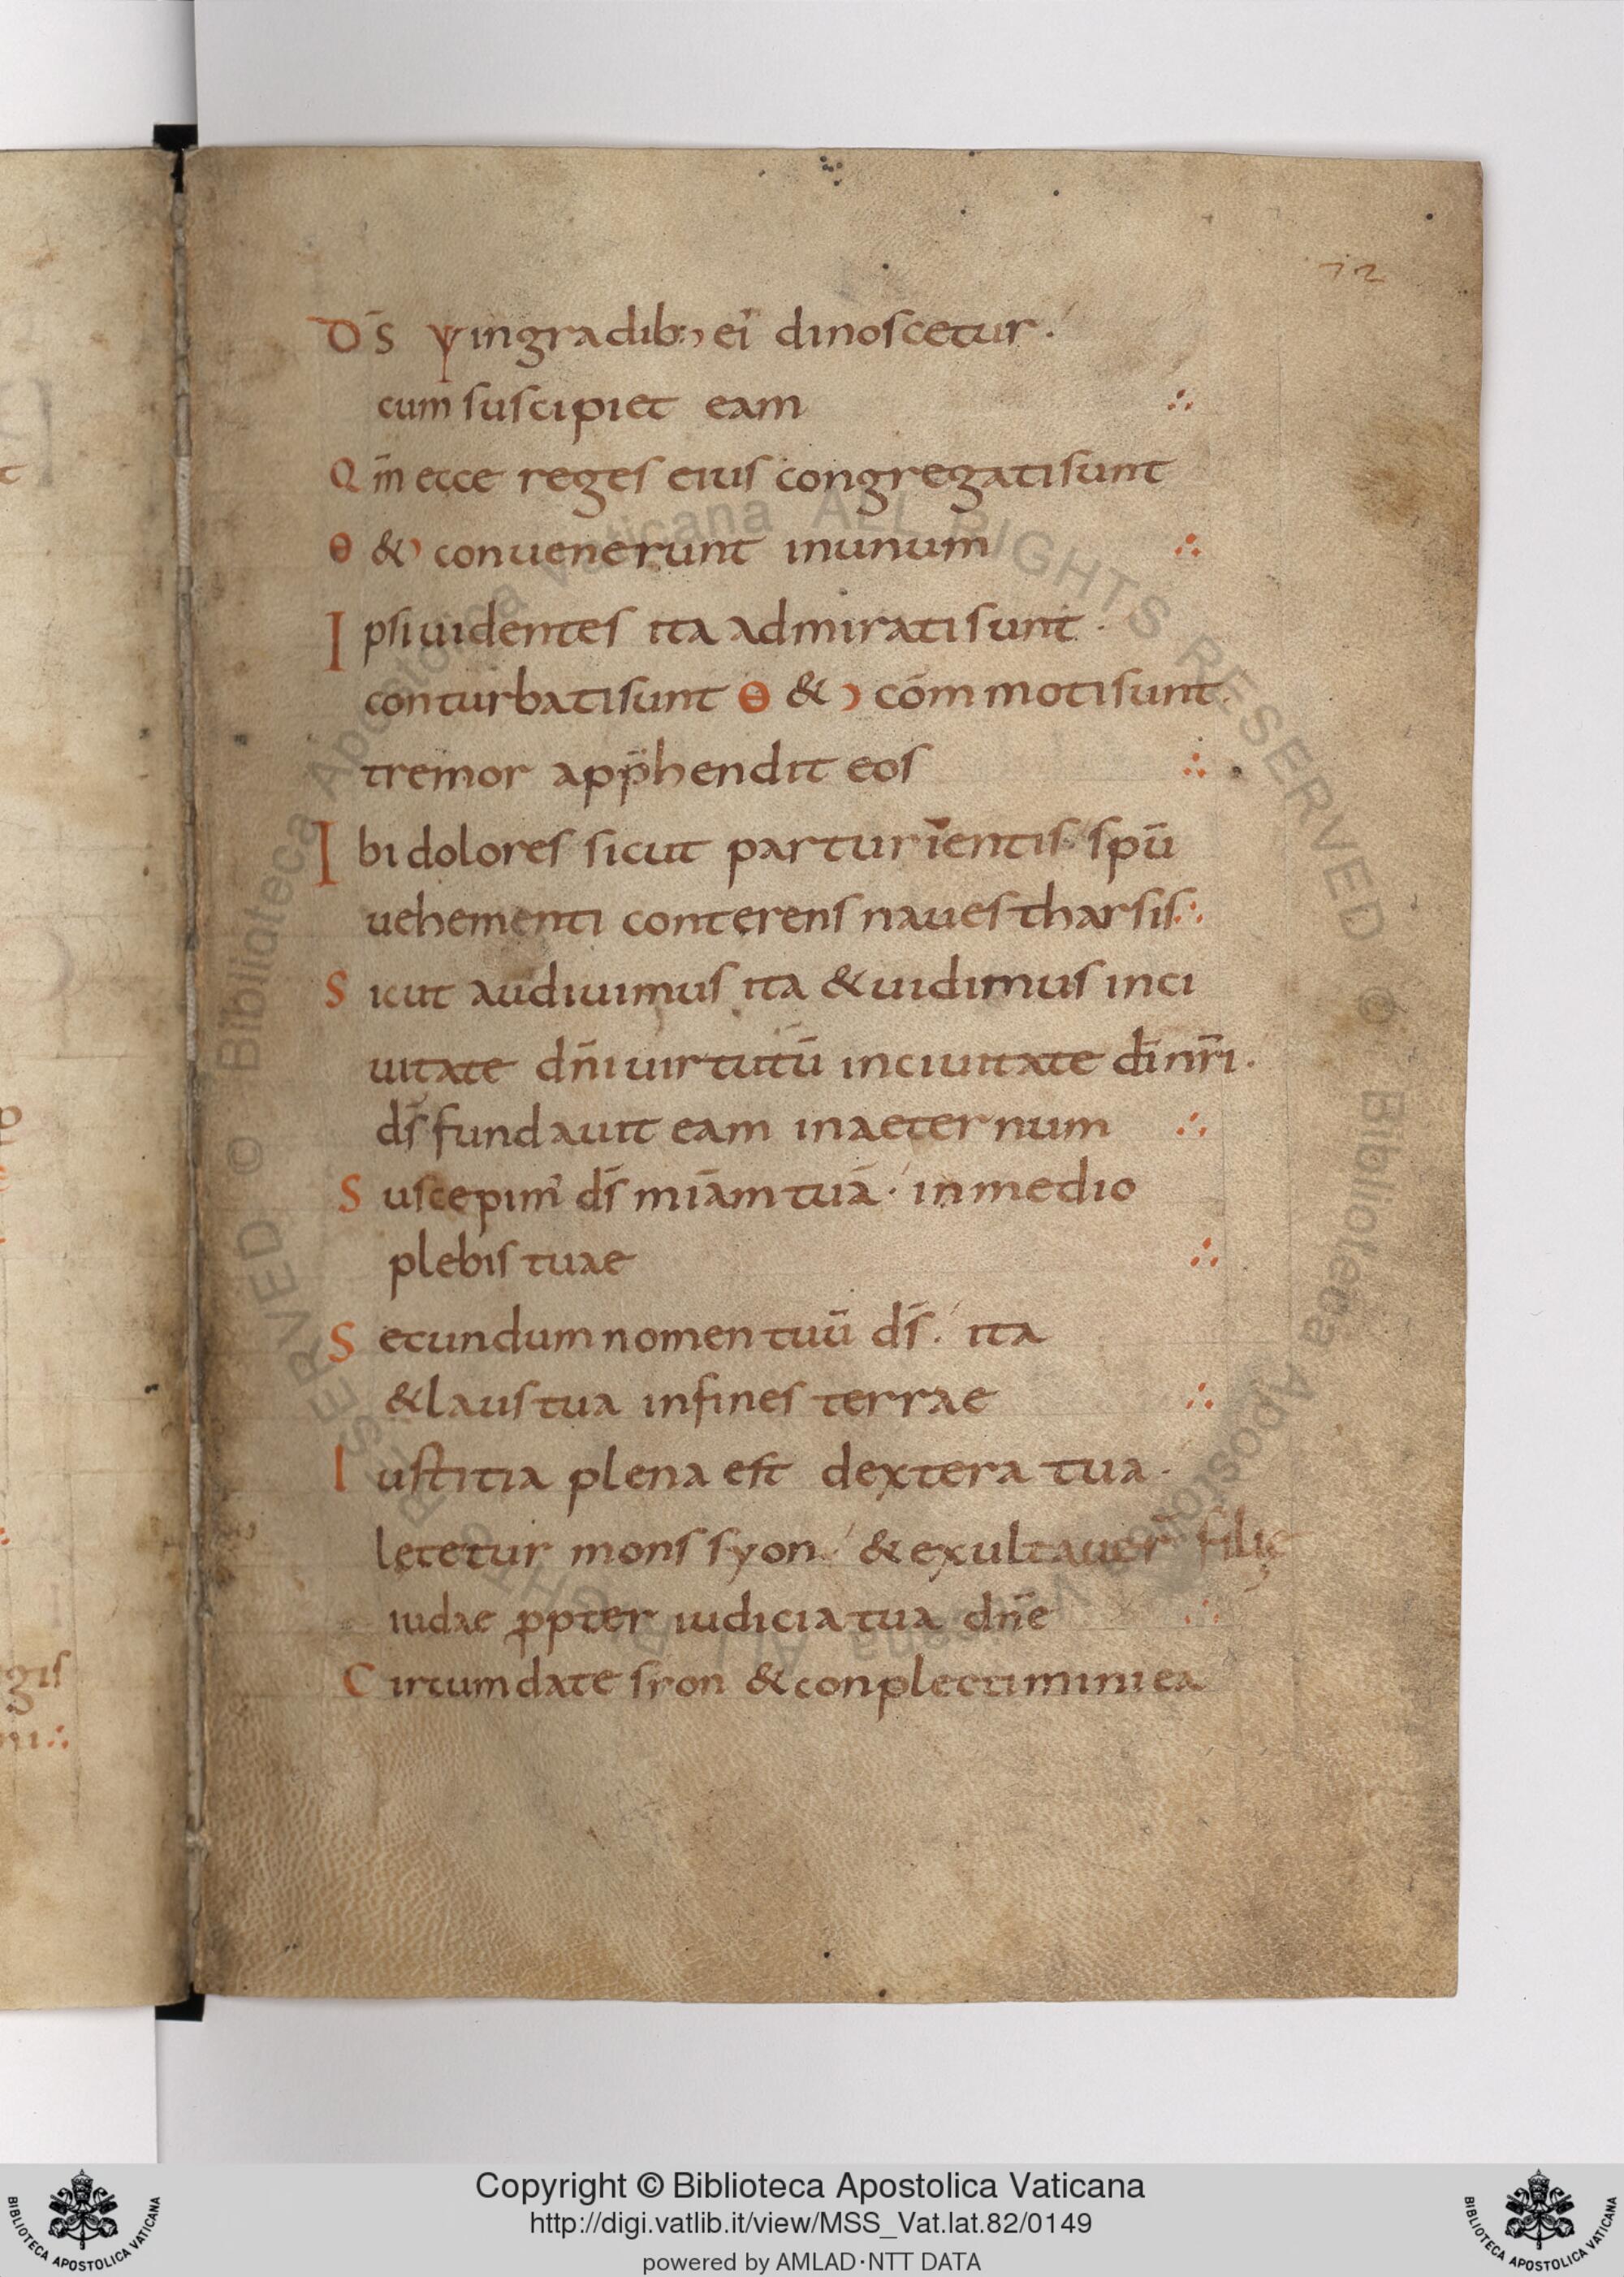 72
D̄S ψ ingradib; ei dinoscetur.
cum suscipiet eam ∴
Qm̄ ecce reges eius congregatisunt
θ &) conuenerunt inunum ∴
Ipsi uidentes ita admiratisunt.
conturbatisunt θ &) com̄motisunt.
tremor app̄hendit eos ∴
Ibi dolores sicut parturientis. spū
uehementi conterens naues tharsis ∴
Sicut audiuimus ita & uidimus inci
uitate dn̄i uirtutū inciuitate dī nr̄i.
ds̄ fundauit eam inaeternum ∴
Suscepim' ds̄ miām tuā. inmedio
plebis tuae ∴
Secundum nomen tuū ds̄. ita
& laus tua infines terrae ∴
Iustitia plena est dextera tua.
lętetur mons syon. & exultauer̄ filię
iudae ꝓpter iudicia tua dn̄e ∴
Circumdate sion & conplectimini eā
gis
Biblioteca Apostolica Vaticana ALL RIGHTS RESERVED © Biblioteca Apostolica Vaticana ALL RIGHTS RESERVED ©
Copyright © Biblioteca Apostolica Vaticana
http://digi.vatlib.it/view/MSS_Vat.lat.82/0149
powered by AMLAD·NTT DATA
BIBLIOTECA APOSTOLICA VATICANA
BIBLIOTECA APOSTOLICA VATICANA